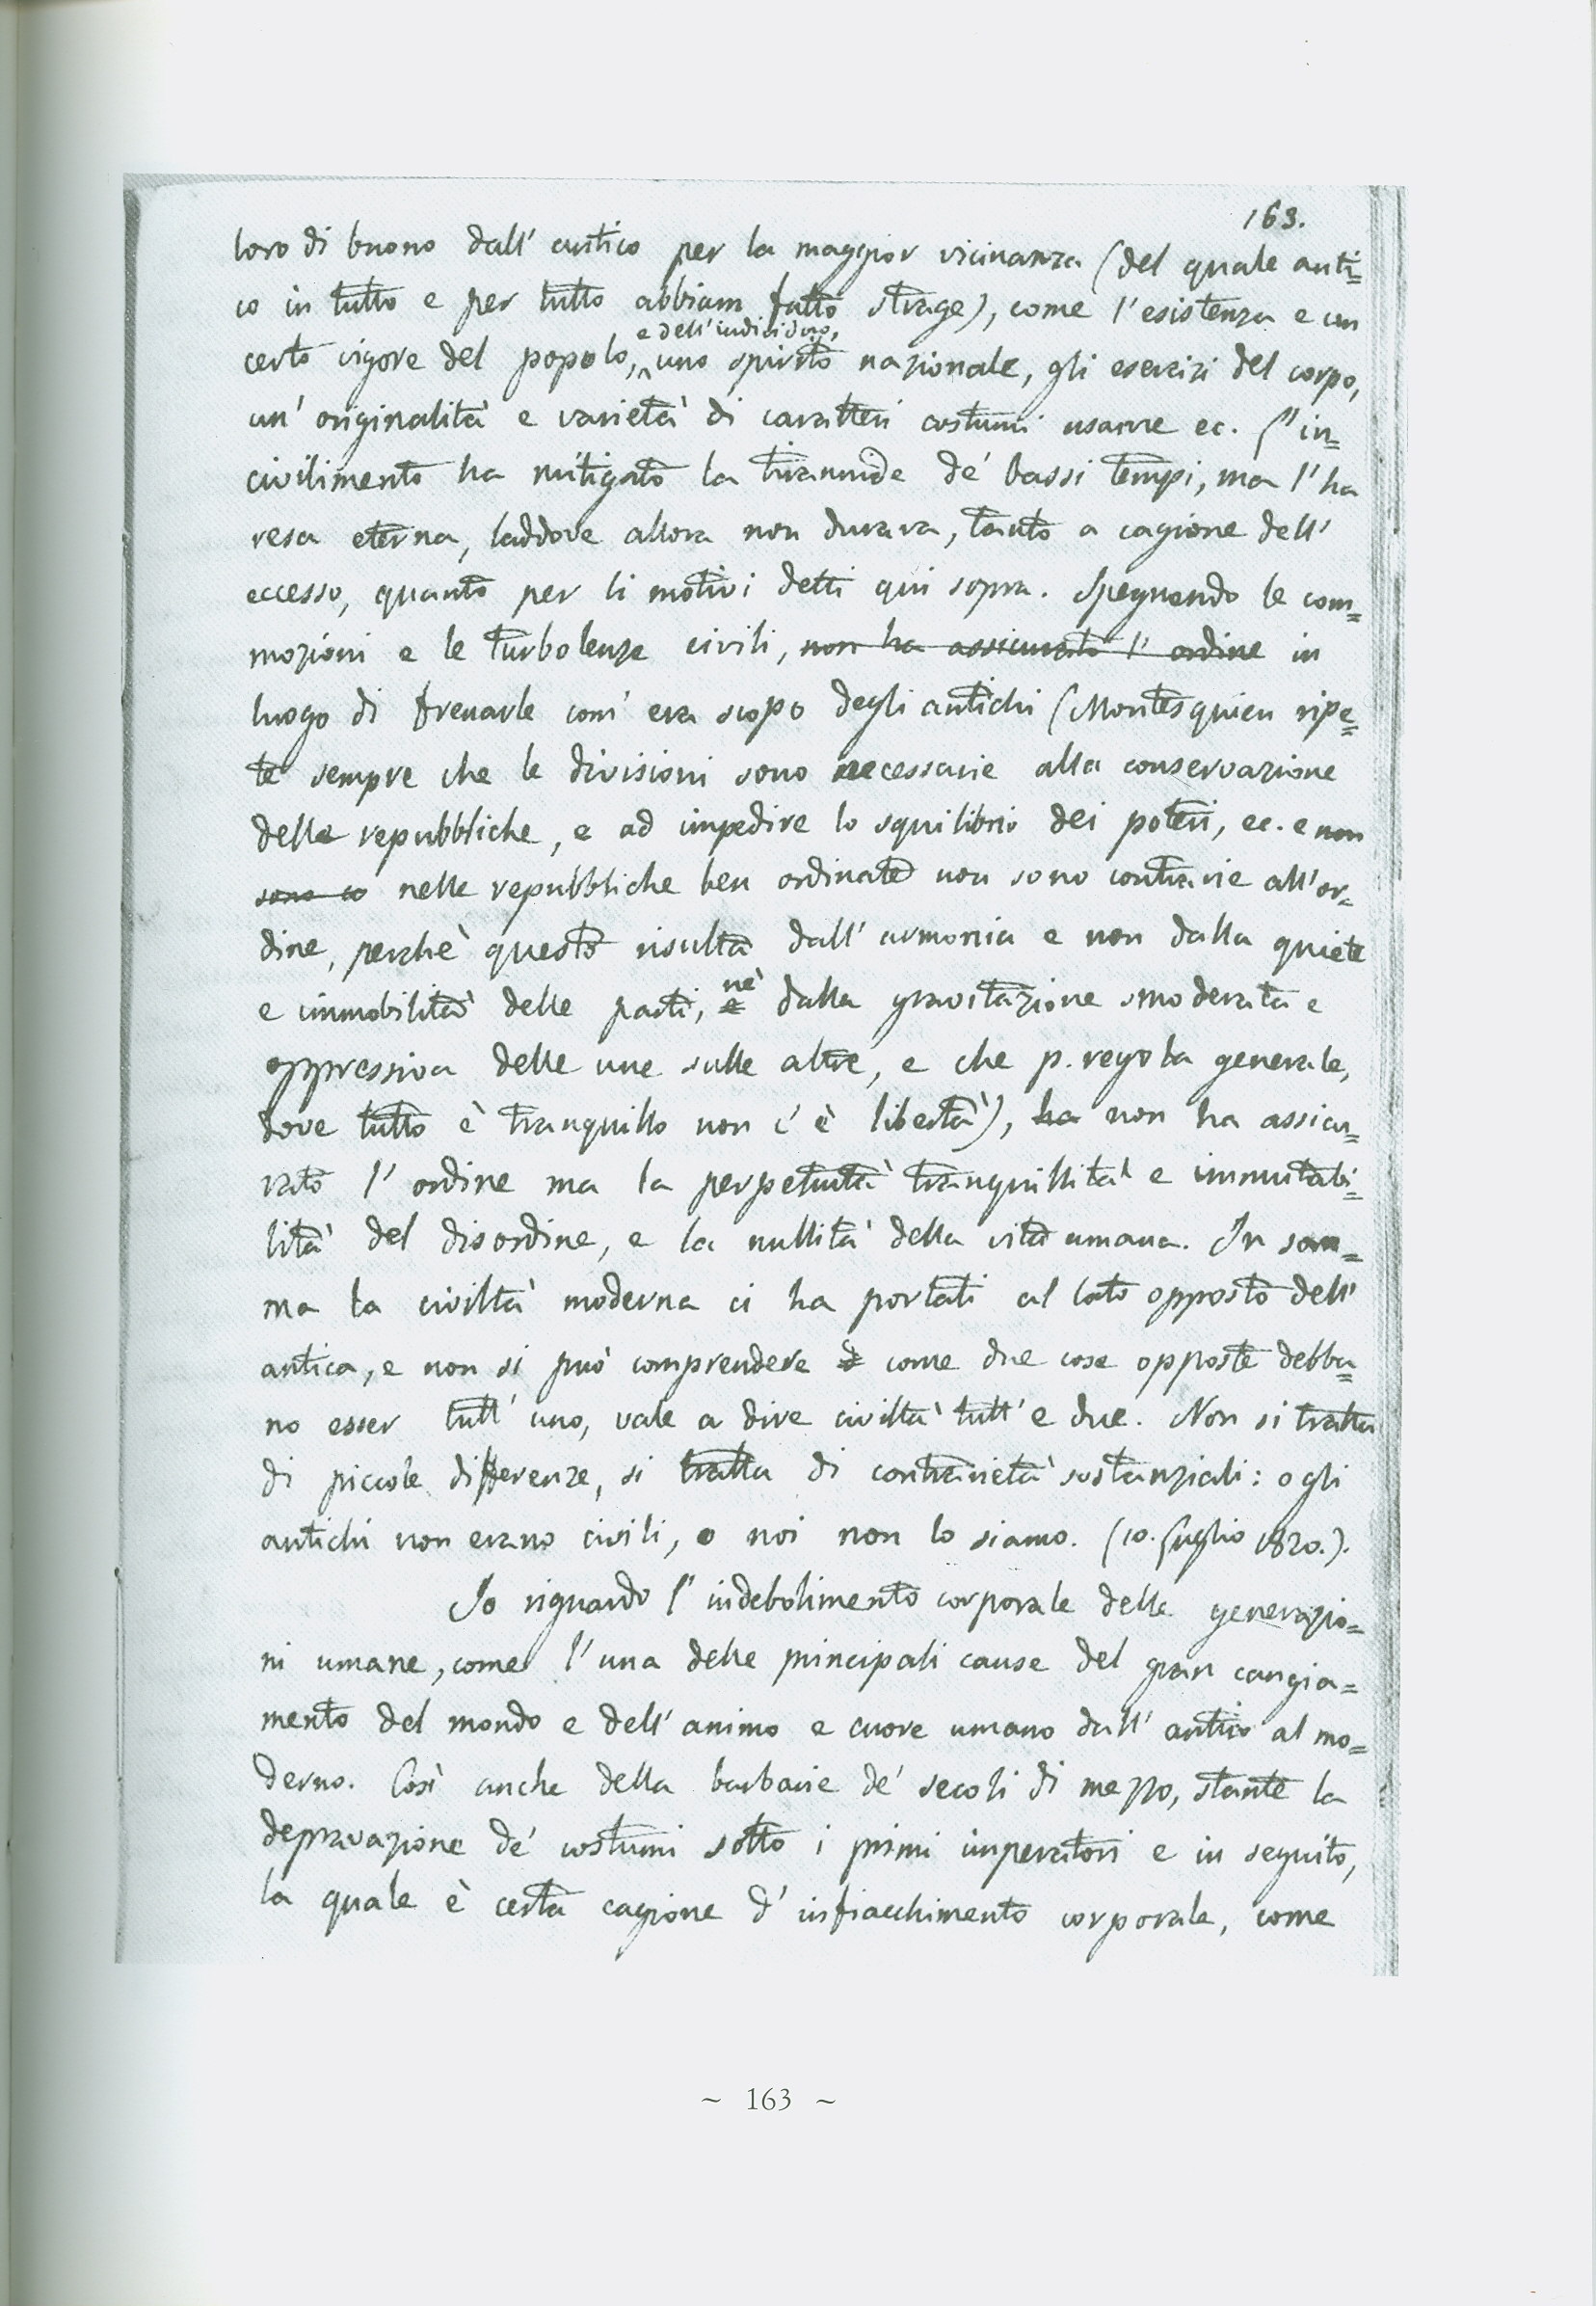 163.
loro di buono dall' antico per la maggior vicinanza (del quale anti=
co in tutto e per tutto abbiam fatto strage), come l'esistenza e un
e dell'individuo,
certo vigore del popolo, uno spirito nazionale, gli esercizi del corpo,
un' originalità e varietà di caratteri costumi usanze ec. L'in=
civilimento ha mitigato la tirannide de' bassi tempi, ma l'ha
resa eterna, laddove allora non durava, tanto a cagione dell'
eccesso, quanto per li motivi detti qui sopra. Spegnendo le com=
mozioni e le turbolenze civili, non ha assicurato l' ordine in
luogo di frenarle com' era scopo degli antichi (Montesquieu ripe=
te sempre che le divisioni sono necessarie alla conservazione
delle repubbliche, e ad impedire lo squilibrio dei poteri, ec. e non
sono co nelle repubbliche ben ordinate non sono contrarie all'or=
dine, perchè questo risulta dall' armonia e non dalla quiete
nè
e immobilità delle parti, e dalla gravitazione smoderata e
oppressiva delle une sulle altre, e che p. regola generale,
dove tutto è tranquillo non c' è libertà), ha non ha assicu=
rato l' ordine ma la perpetuità tranquillità e immutabi=
lità del disordine, e la nullità della vita umana. In som=
ma la civiltà moderna ci ha portati al lato opposto dell'
antica, e non si può comprendere come due cose opposte debba=
no esser tutt' uno, vale a dire civiltà tutt' e due. Non si tratta
di piccole differenze, si tratta di contrarietà sostanziali: o gli
antichi non erano civili, o noi non lo siamo. (10. Luglio 1820.).
Io riguardo l' indebolimento corporale delle generazio=
ni umane, come l' una delle principali cause del gran cangia=
mento del mondo e dell' animo e cuore umano dall' antico al mo=
derno. Così anche della barbarie de' secoli di mezzo, stante la
depravazione de' costumi sotto i primi imperatori e in seguito,
la quale è certa cagione d' infiacchimento corporale, come
~ 163 ~